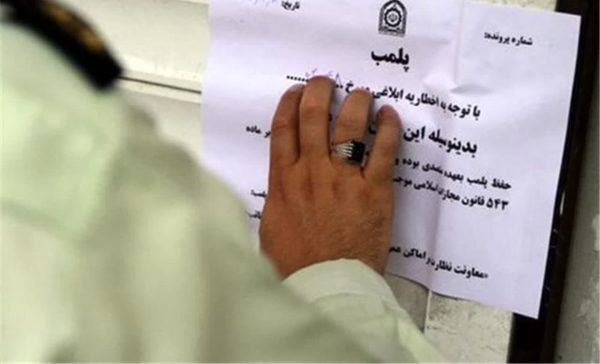 تاریخ:
شماره پرونده:
پلمب
با توجه به اخطاریه ابلاغی
بدینوسیله این
حفظ پلمب بعهده متصدی بوده و بر ماده
۵۴۳ قانون مجازات اسلامی
معاونت نظارت بر اماکن